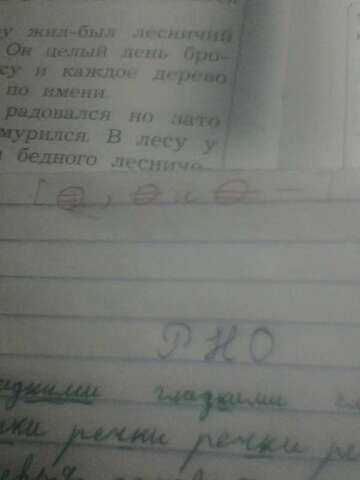 у жил-был лесничий
Он целый день бро-
ку и каждое дерево
по имени.
радовался но зато
мурился. В лесу у
бедного лесниче-
РНО
гладкими
речки речки